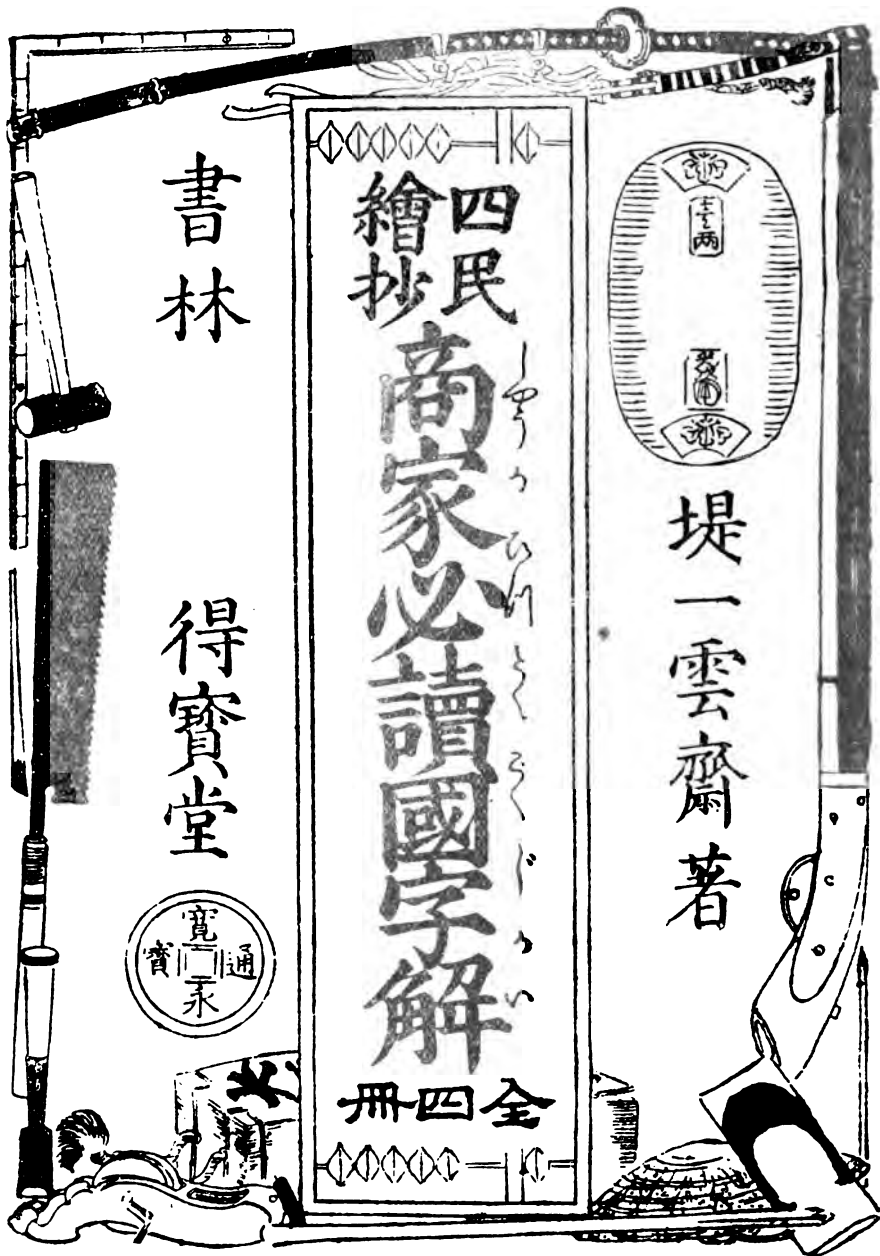 堤一雲齋著
壹両
四民
繪抄
商家必讀國字解
しやうかひつとくこくじかい
全四冊
書林
得寶堂
寛永通寳